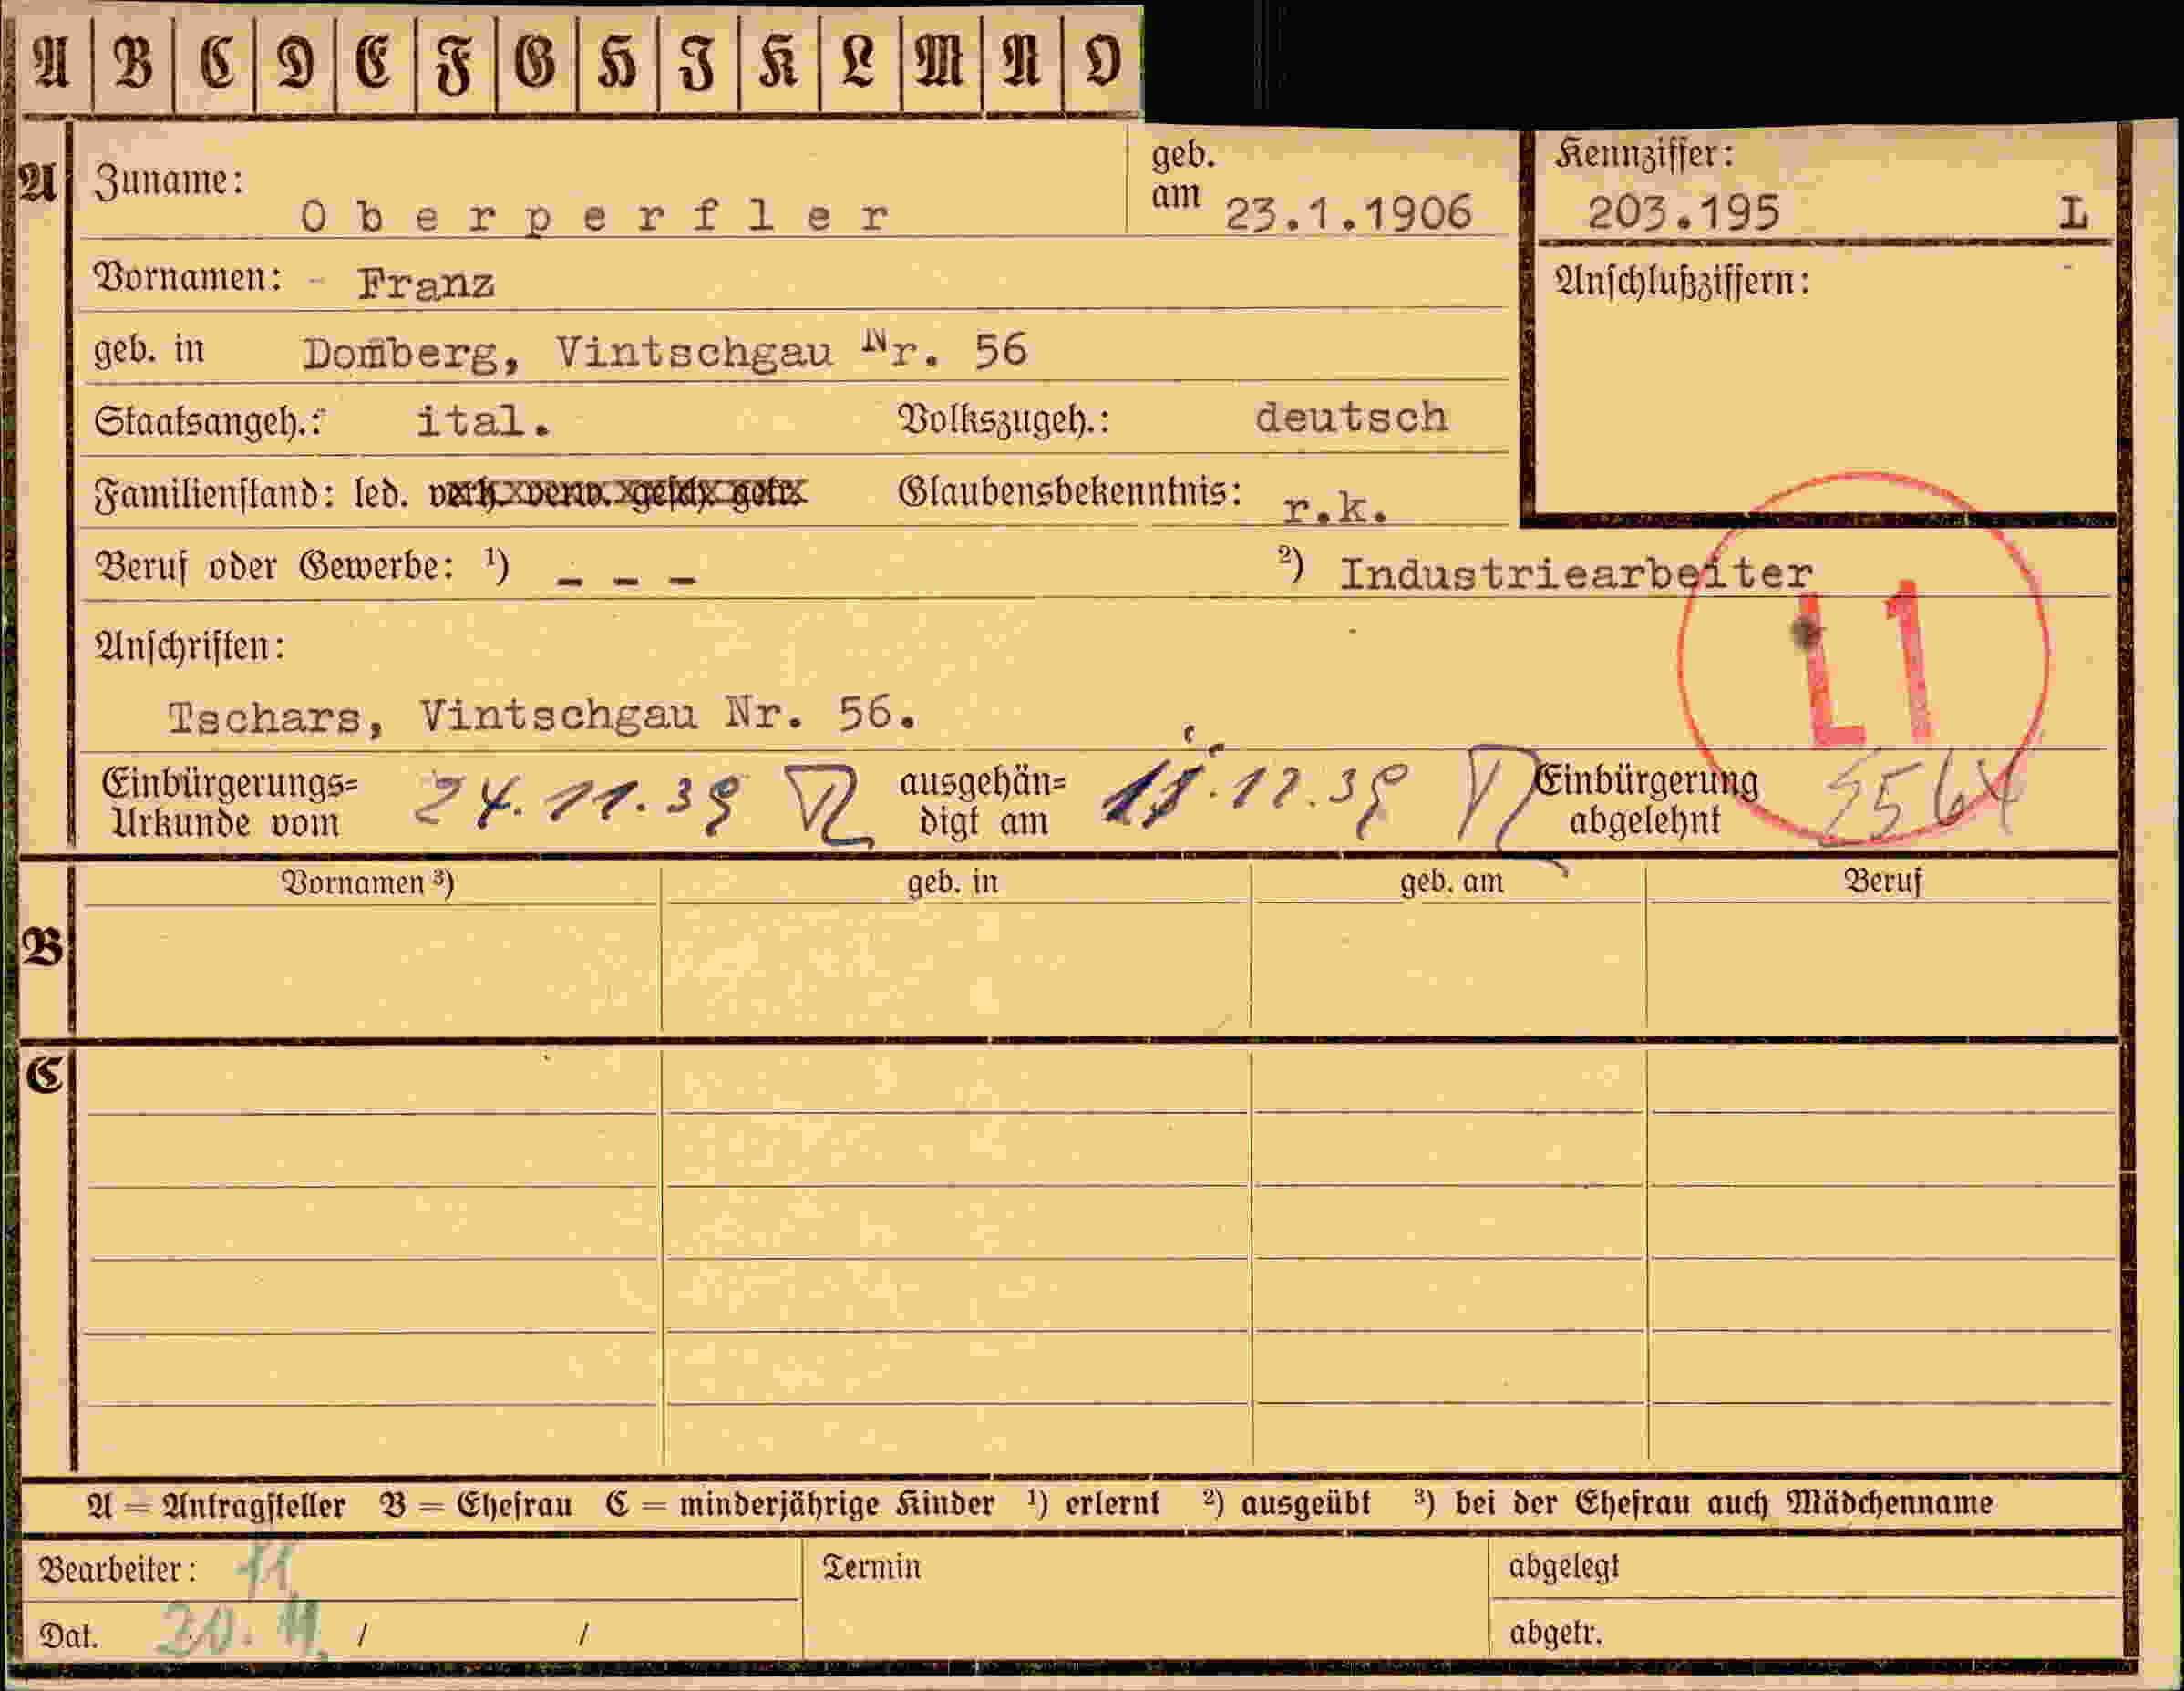 A B C D E F G H I K L M N O
A Zuname: Oberperfler geb. am 23.1.1906 Kennziffer: 203.195 L
Vornamen: - Franz Anschlußziffern:
geb. in Domberg, Vintschgau Nr. 56
Staatsangeh.: ital. Volkszugeh.: deutsch
Familienstand: led. verh. verw. gesch. getr. Glaubensbekenntnis: r.k.
Beruf oder Gewerbe: ¹) - - - ²) Industriearbeiter
Anschriften:
L1
Tschars, Vintschgau Nr. 56.
Einbürgerungs= 24.11.39 ausgehän= 12.39 Einbürgerung
Urkunde vom digt am abgelehnt
Vornamen ³) geb. in geb. am Beruf
B
C
A = Antragsteller B = Ehefrau C = minderjährige Kinder ¹) erlernt ²) ausgeübt ³) bei der Ehefrau auch Mädchenname
Bearbeiter: Termin abgelegt
Dat. 20. 11. / / abgetr.